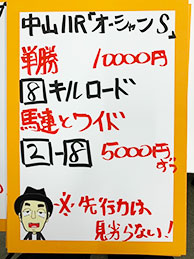 中山11R「オーシャンS」
単勝 10000円
8 キルロード
馬連とワイド
2-8 5000円
ずつ
※先行力は
見劣らない!